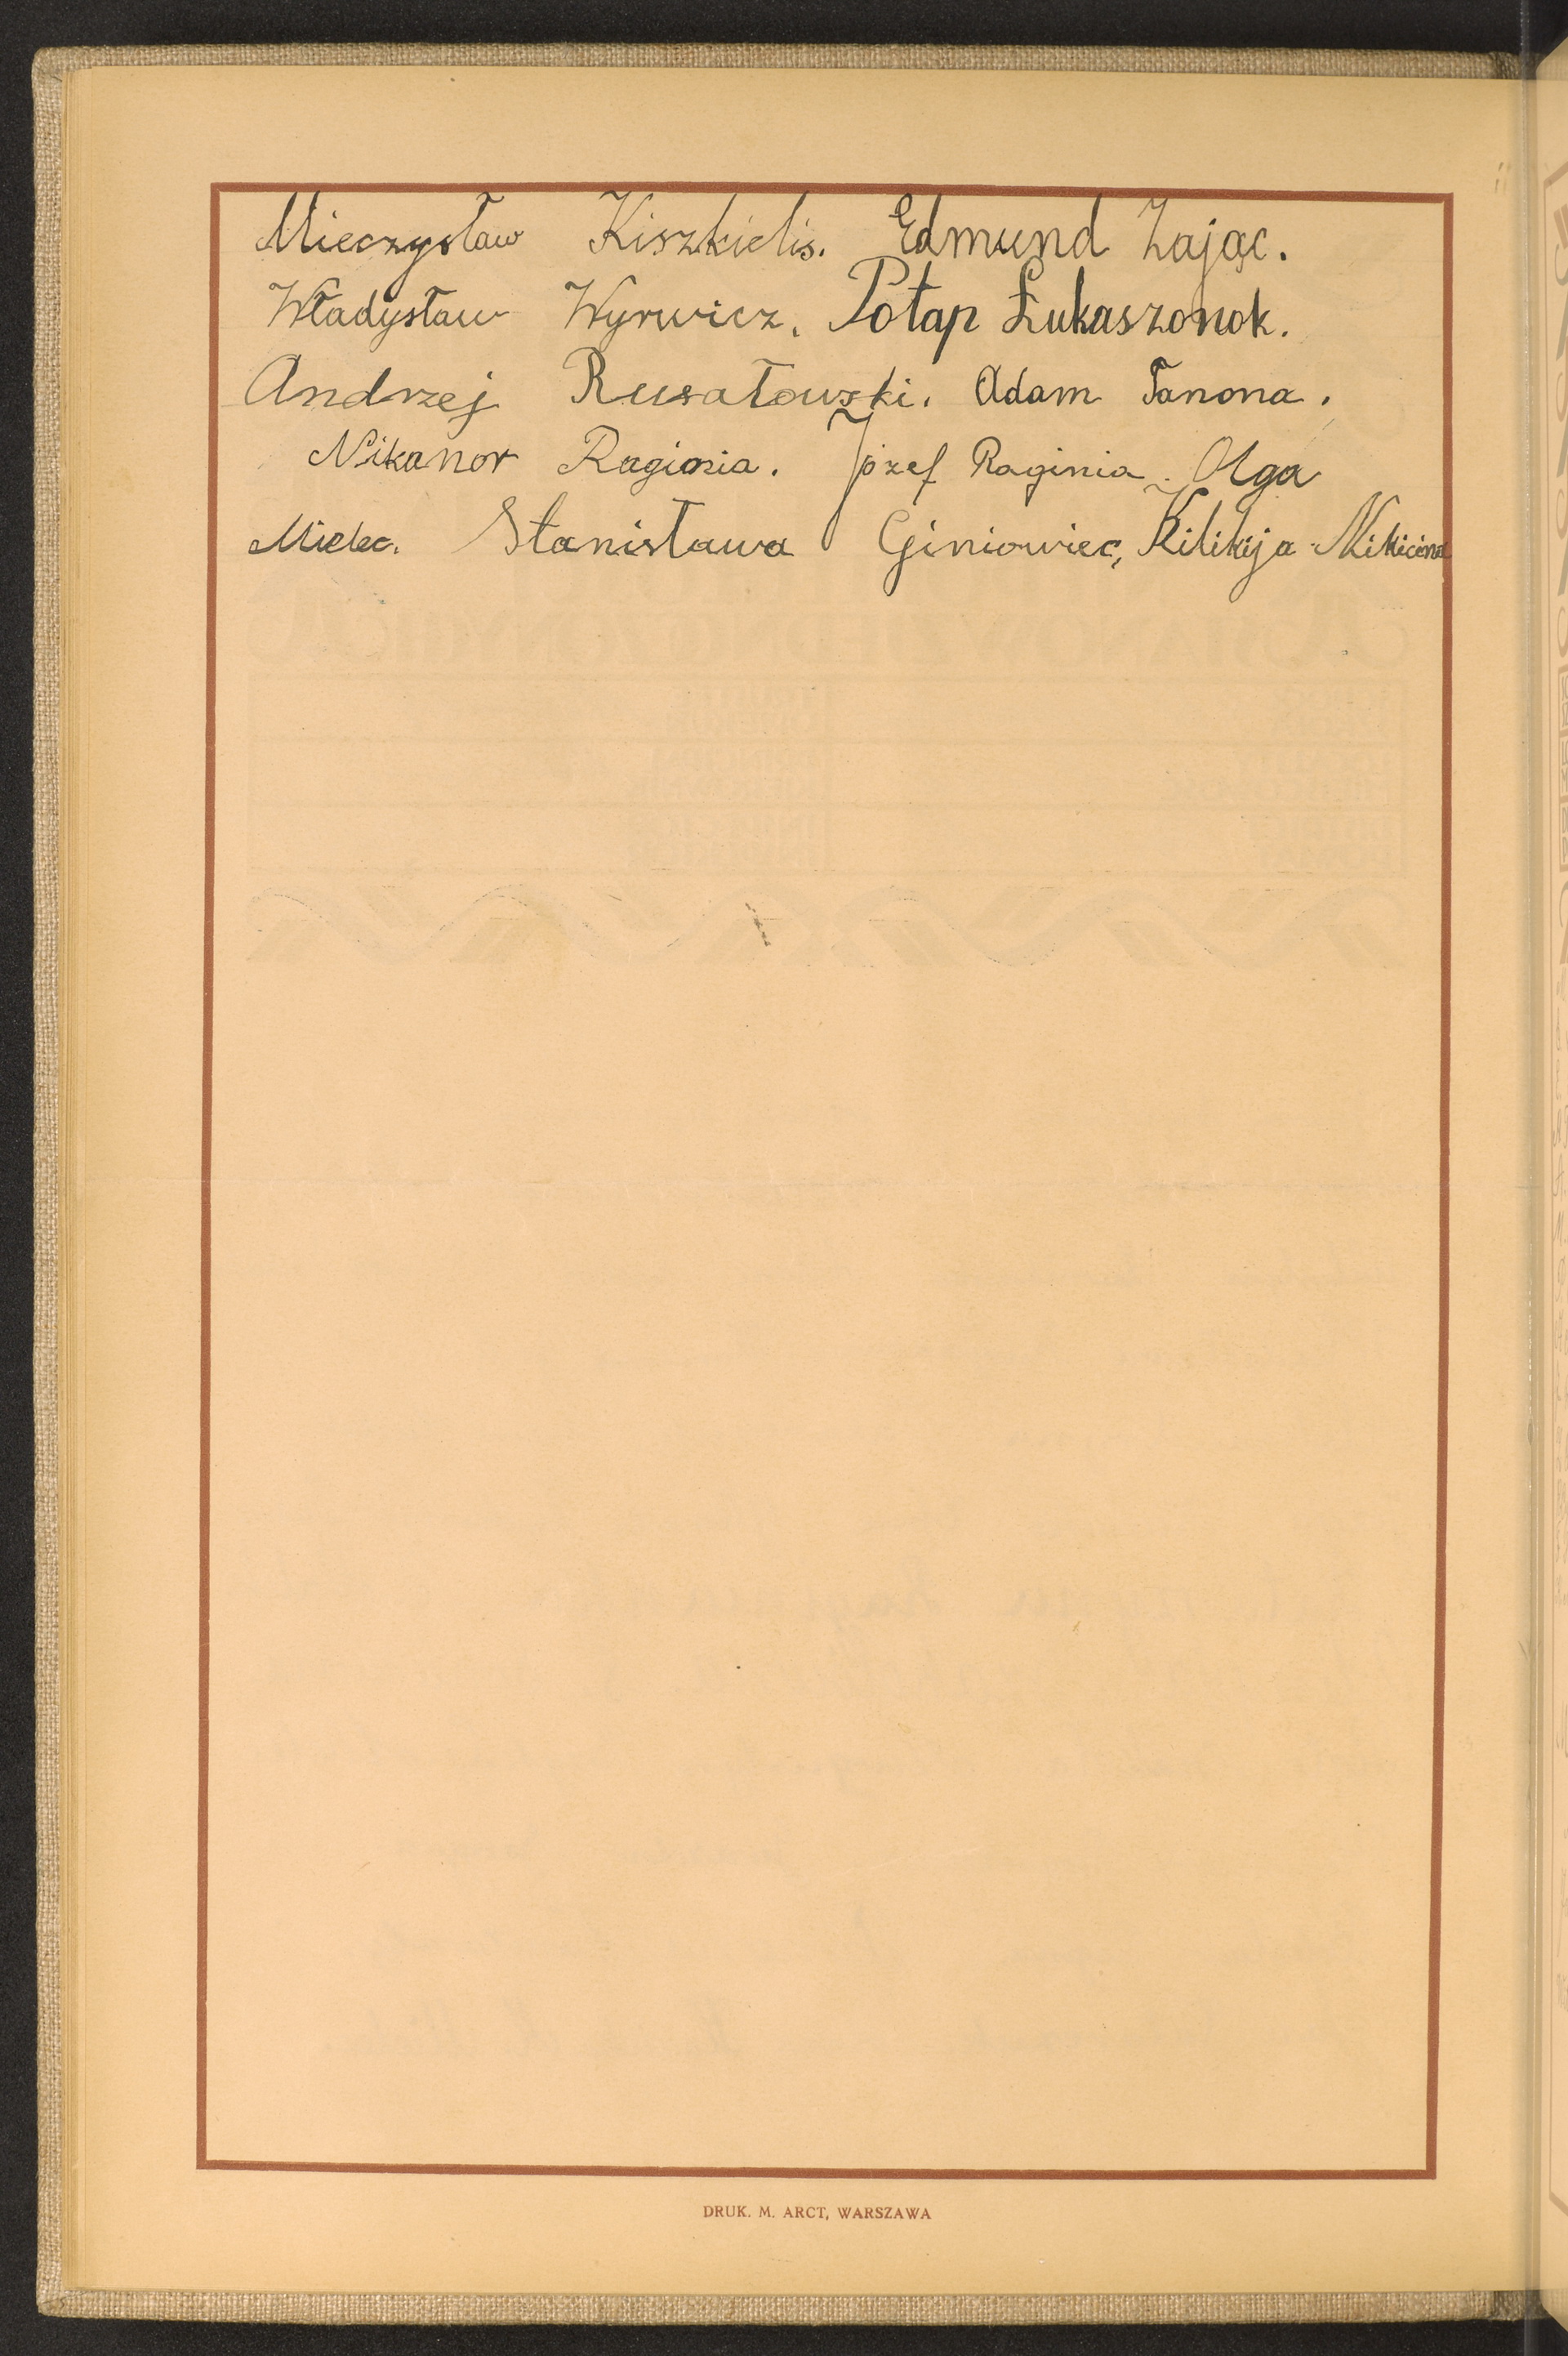 Mieczysław Kiszkielis. Edmund Zając.
Władysław Wyrwicz. Potap Łukaszonok.
Andrzej Rusałowski. Adam Tanona.
Nikanor Raginia. Józef Raginia. Olga
Mielec. Stanisława Giniowiec, Kilikija
DRUK. M. ARCT, WARSZAWA